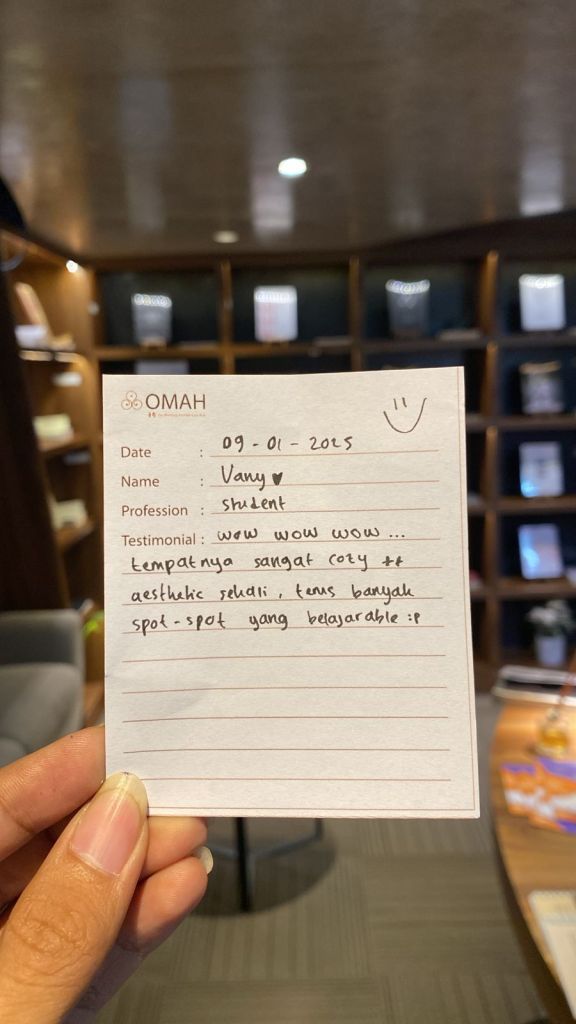 OMAH
Date : 09 - 01 - 2025
Name : Vany ♥
Profession : student
Testimonial : wow wow wow ...
tempatnya sangat cozy ++
aesthetic sekali , terus banyak
spot - spot yang belajarable :p